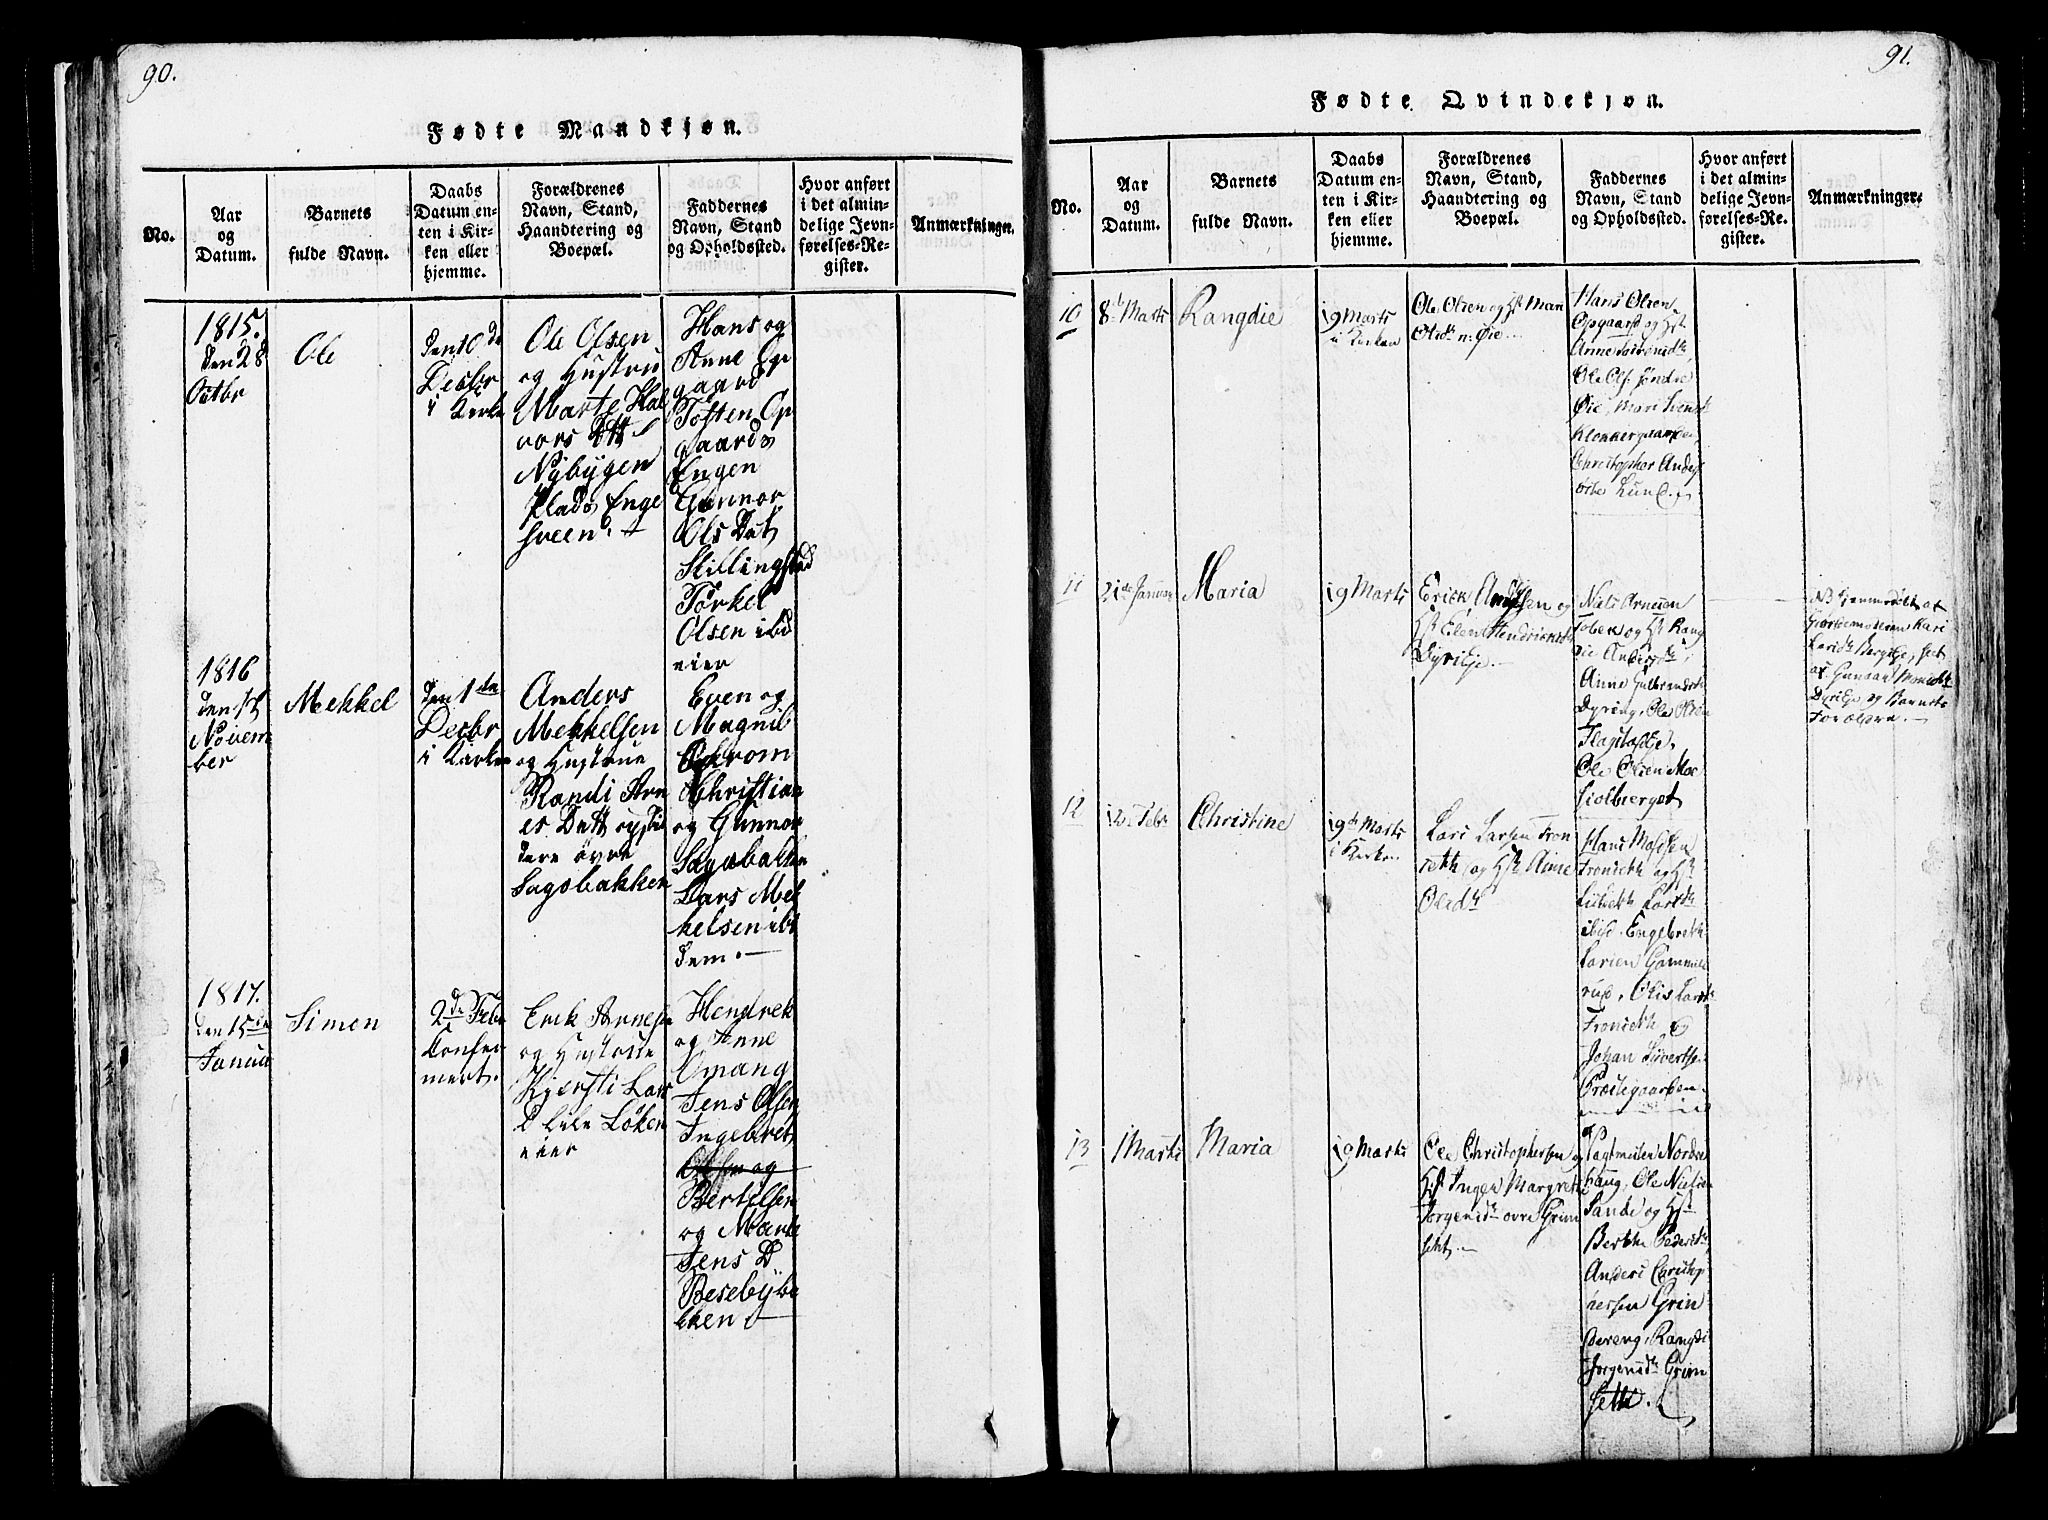 90.
Fødte Mandkjøn.
No.
Aar
og
Datum.
Barnets
fulde Navn.
Daabs
Datum en-
ten i Kir-
ken eller
hjemme.
Forældrenes
Navn, Stand,
Haandtering og
Boepæl.
Faddernes
Navn, Stand
og Opholdssted.
Hvor anført
i det almin-
delige Jevn-
førelses-Re-
gister.
Anmærkninger.
1815.
den 28
Octbr
Ole
den 10de
Decbr
i Kirke
Ole Olsen
og Hustru
Marte Hal
vors Dtt
Nybygen
Plads Enge
sveen.
Hans og
Anne Op
gaard
Tosten Op
gaards
Engen
Gunnor
Ols Dat
Skillingstad
Torkel
Olsen ibd
eier
1816
den
Novem
ber
Mekkel
den 1de
Decbr
i Kirken
Anders
Mekkelsen
og Hustrue
Randi Arn
es Datt
øvre
Sagsbakken
Even og
Magnil
Christian
og Gunnor
Sagsbakken
Lars Mek
kelsen ibi
dem.
1817.
den 15de
Janua
Simen
2de Febr
Confir
mert.
Erik Arnesen
og Hustrue
Kjersti Lars
D Lile Løken
eier
Hendrek
og Anne
Omang
Jens Olsen
Ingebret
Olsen og
Bertelsen
og Marte
Jens D
Besebybe
kken
91.
Fødte Qvindekjøn.
No.
Aar
og
Datum.
Barnets
fulde Navn.
Daabs
Datum en-
ten i Kir-
ken eller
hjemme.
Forældrenes
Navn, Stand,
Haandtering og
Boepæl.
Faddernes
Navn, Stand
og Opholdssted.
Hvor anført
i det almin-
delige Jevn-
førelses-Re-
gister.
Anmærkninger.
10
8de Marts
Rangdie
19 Marts
i Kirken
Ole Olsen og Hst Mari
Olsdt n: Øie
Hans Olsen
Opgaard og Hst
Anne
Ole Ols. søndre
Øie, Mari
Klokkergaarden,
Christopher Anders
Lund.
11
21de Januar
Maria
19 Marts
Erick og
Hst Elen Hendricksdt
Dyrilje
Niels Arnesen
Toben og Hst Rang
die Andersdt,
Anne Gulbrandsdt
Dyring, Ole Olsen
Flagstadeje,
Ole Olsen Moe
Siolberget
NB Hjemmedøbt af
Giordemoderen Kari
Larsdt Bergseje, seet
af Gunnar
Dyrilje og Barnets
Forældre.
12
12 Febr
Christine
19de Marts
i Kirken
Lars Larsen Fron
sekk og Hst Anne
Olsdt
Hans Madsen
Fronsekk og Hst
Lisbeth Larsdt
ibid. Engebrekt
Larsen Gammels
rud, Larsdt
Fronsekk og
Johan Sivertsen
Præstegaarden
13
1 Marts
Maria
19 Marts
Ole Christophersen og
Hst Ingen Margrete
Jørgensdt øvre Grim
sett.
Nordre
haug, Ole Nielsen
Sande og Hst
Berthe Pedersdt,
Anders Christop
hersen Grin
dereng, Rangdi
Jørgensdt Grim
sett.